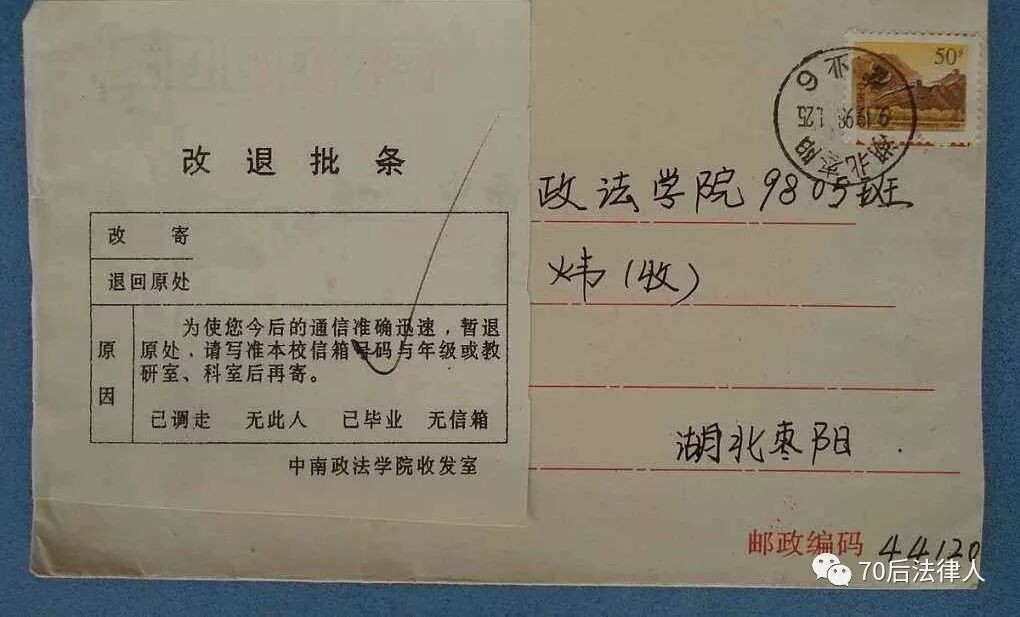 改退批条
改寄
退回原处
原因
为使您今后的通信准确迅速，暂退
原处，请写准本校信箱号码与年级或教
研室、科室后再寄。
已调走 无此人 已毕业 无信箱
中南政法学院收发室
50分
湖北枣阳
政法学院9805班
炜(收)
湖北枣阳.
邮政编码 44120
70后法律人